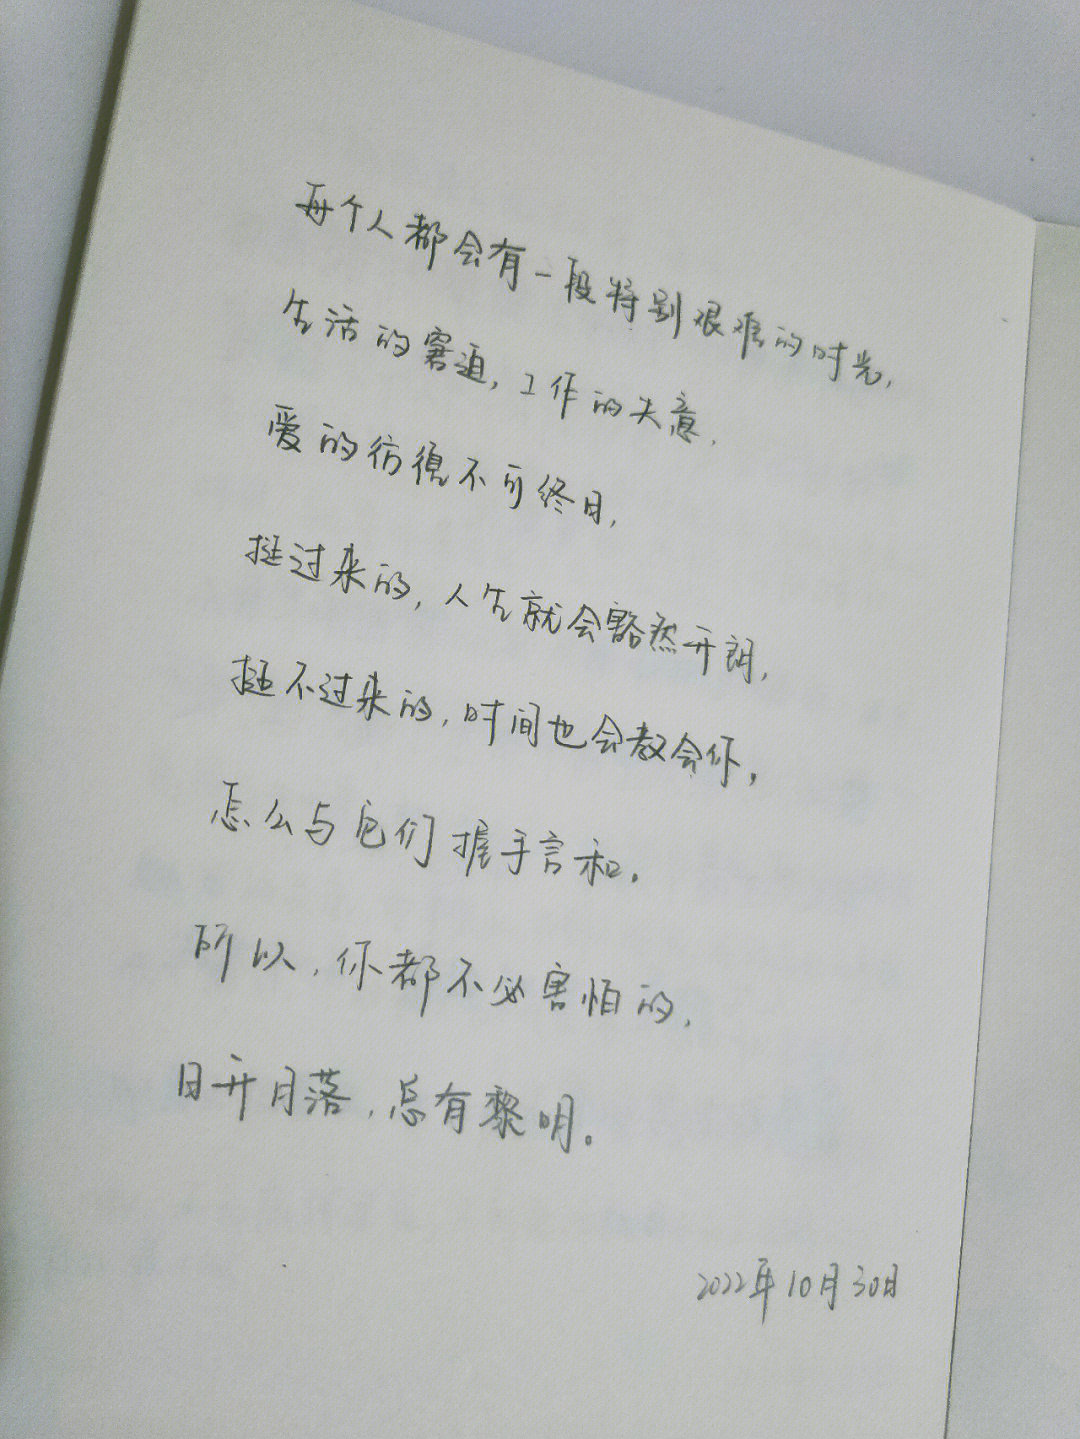 每个人都会有一段特别艰难的时光,
生活的窘迫,工作的失意,
爱的彷徨不可终日,
挺过来的,人生就会豁然开朗,
挺不过来的,时间也会教会你,
怎么与它们握手言和。
所以,你都不必害怕的,
日升月落,总有黎明。
2022年10月30日